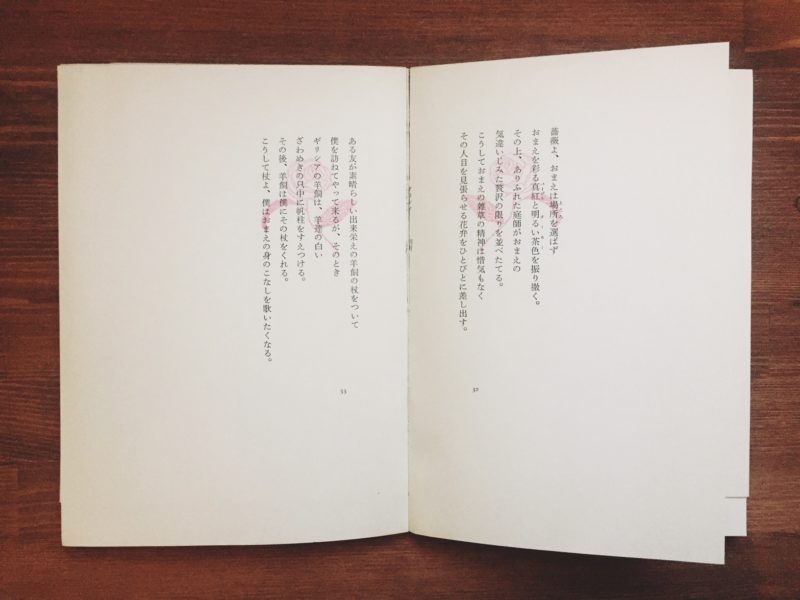 薔薇よ、おまえは場所を選ばず
おまえを彩る真紅と明るい茶色を振り撒く。
その上、ありふれた庭師がおまえの
気違いじみた贅沢の限りを並べたてる。
こうしておまえの雑草の精神は惜気もなく
その人目を見張らせる花弁をひとびとに差し出す。
32
ある友が素晴らしい出来栄えの羊飼の杖をついて
僕を訪ねてやって来るが、そのとき
ギリシアの羊飼は、羊達の白い
ざわめきの只中に帆柱をすえつける。
その後、羊飼は僕にその杖をくれる。
こうして杖よ、僕はおまえの身のこなしを歌いたくなる。
33